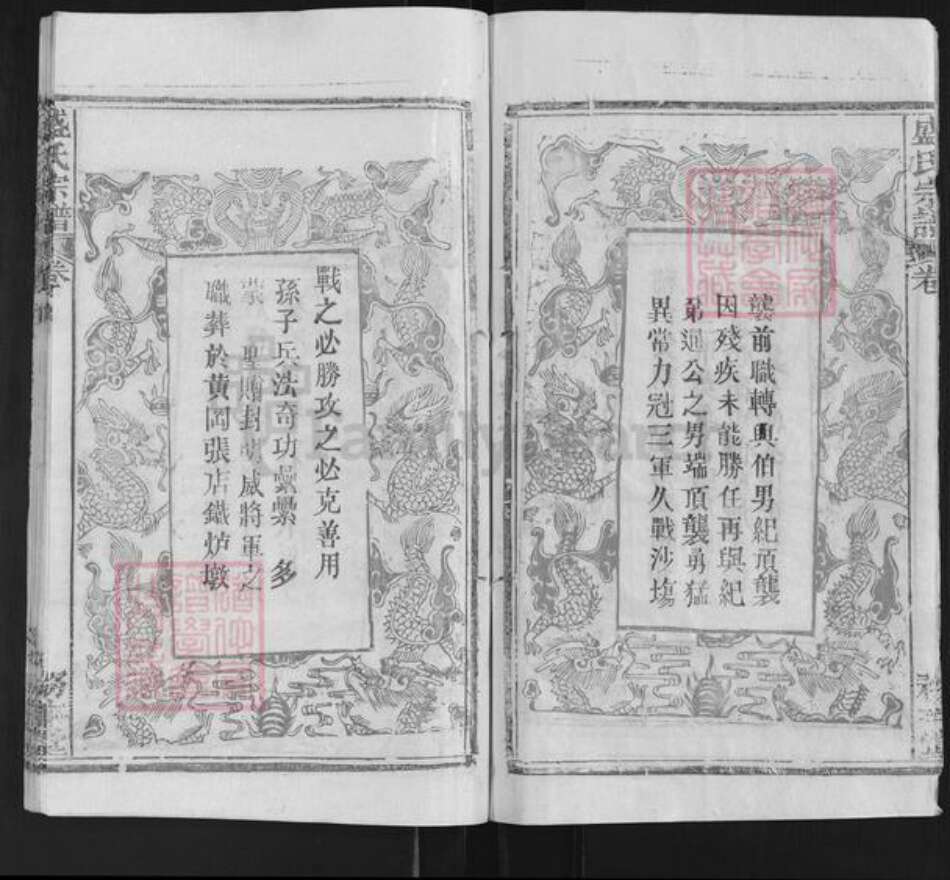 盛氏宗譜
卷
襲前職轉與伯男紀頂襲
因殘疾未能勝任再與紀
弟迴公之男端頂襲勇猛
異常力冠三軍久戰沙塲
戰之必勝攻之必克善用
孫子兵法奇功疊纍 多
蒙 聖贈封 威將軍之
職葬於黄岡張店鐵炉墩
盛氏宗譜
卷